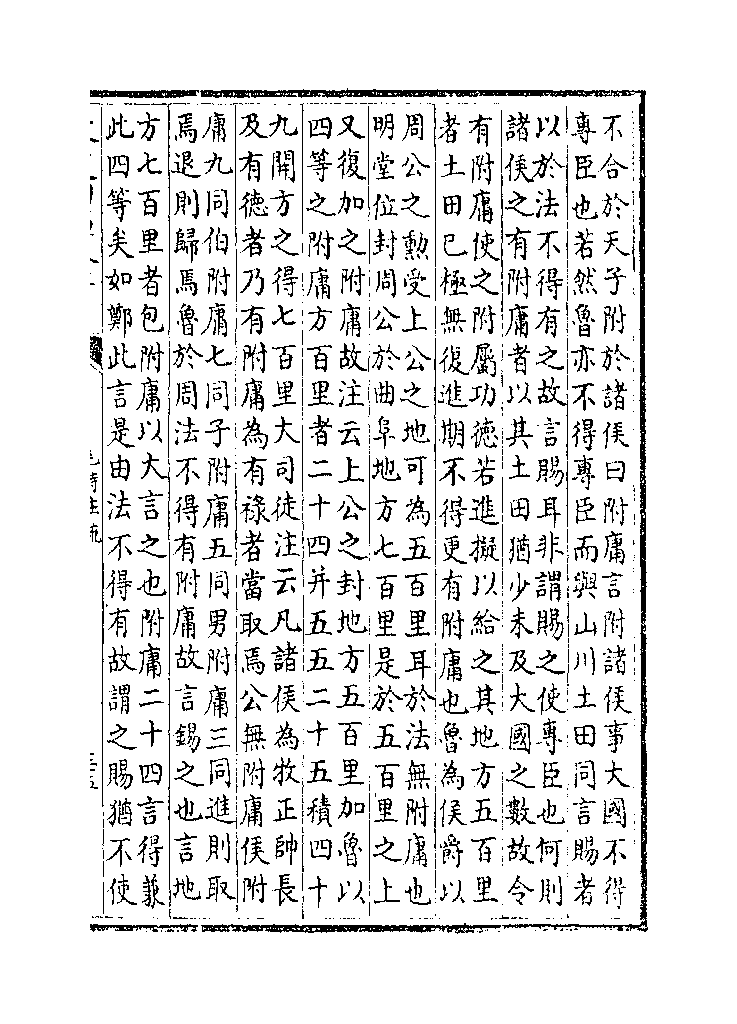 不合於天子附於諸侯曰附庸言附諸侯事大國不得
專臣也若然魯亦不得專臣而與山川土田同言賜者
以於法不得有之故言賜耳非謂賜之使專臣也何則
諸侯之有附庸者以其土田猶少未及大國之數故令
有附庸使之附屬功德若進擬以給之其地方五百里
者土田已極無復進期不得更有附庸也魯為侯爵以
周公之勲受上公之地可為五百里耳於法無附庸也
明堂位封周公於曲阜地方七百里是於五百里之上
又復加之附庸故注云上公之封地方五百里加魯以
四等之附庸方百里者二十四并五五二十五積四十
九開方之得七百里大司徒注云凡諸侯為牧正帥長
及有德者乃有附庸為有祿者當取焉公無附庸侯附
庸九同伯附庸七同子附庸五同男附庸三同進則取
焉退則歸焉魯於周法不得有附庸故言錫之也言地
方七百里者包附庸以大言之也附庸二十四言得兼
此四等矣如鄭此言是由法不得有故謂之賜猶不使